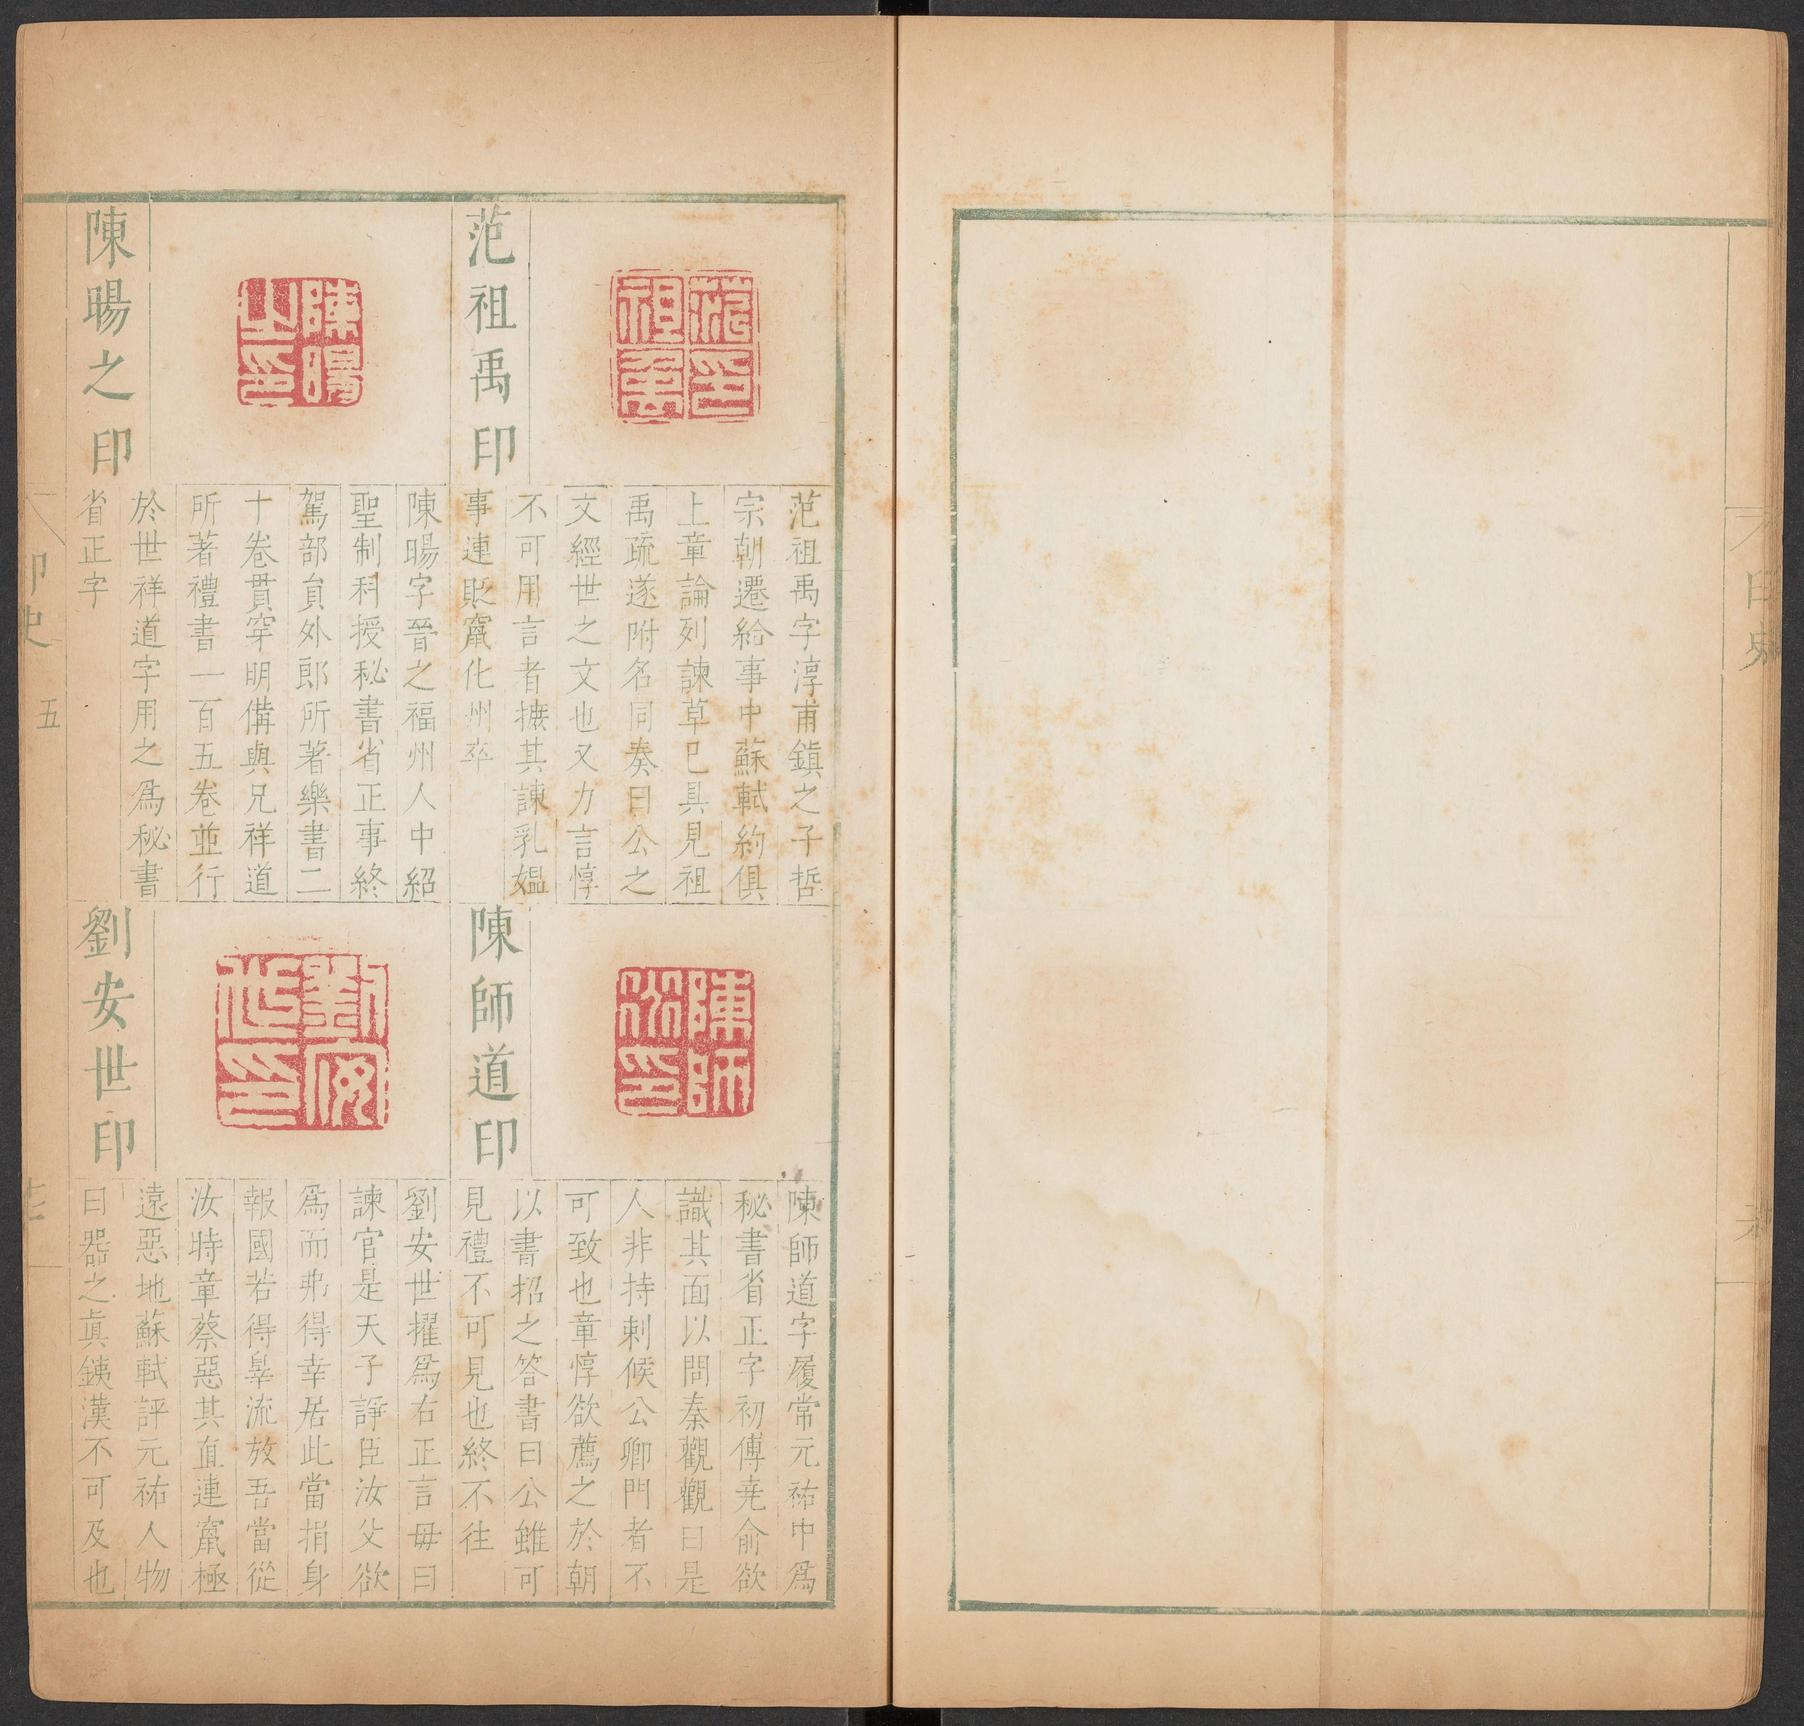 范祖禹印
范祖禹字淳甫鎮之子哲
宗朝遷給事中蘇軾約俱
上章論列諫草已具見祖
禹疏遂附名同奏曰公之
文經世之文也又力言惇
不可用言者摭其諫乳媼
事連貶竄化州卒
陳暘之印
陳暘字晉之福州人中紹
聖制科授秘書省正事終
駕部員外郎所著樂書二
十卷貫穿明備與兄祥道
所著禮書一百五卷並行
於世祥道字用之爲秘書
省正字
陳師道印
陳師道字履常元祐中爲
秘書省正字初傅堯俞欲
識其面以問秦觀觀曰是
人非持刺候公卿門者不
可致也章惇欲薦之於朝
以書招之答書曰公雖可
見禮不可見也終不往
劉安世印
劉安世擢爲右正言毋曰
諫官是天子諍臣汝父欲
爲而弗得幸居此當捐身
報國若得辠流放吾當從
汝時章蔡惡其直連竄極
遠惡地蘇軾評元祐人物
曰器之眞鐵漢不可及也
范印祖禹
陳暘之印
陳師道印
劉安世印
印史 五
印史